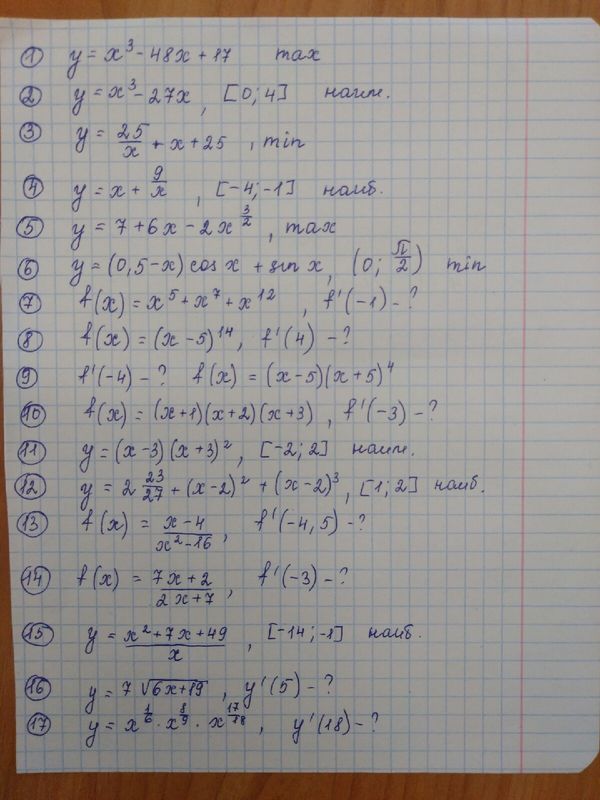 ① y = x³ - 48x + 17 max
② y = x³ - 27x, [0; 4] наим.
③ y = 25/x + x + 25, min
④ y = x + 9/x, [-4; -1] наиб.
⑤ y = 7 + 6x - 2x^(3/2), max
⑥ y = (0,5-x) cos x + sin x, (0; π/2) min
⑦ f(x) = x⁵ + x⁷ + x¹², f'(-1) - ?
⑧ f(x) = (x-5)¹⁴, f'(4) - ?
⑨ f'(-4) - ? f(x) = (x-5)(x+5)⁴
⑩ f(x) = (x+1)(x+2)(x+3), f'(-3) - ?
⑪ y = (x-3)(x+3)², [-2; 2] наим.
⑫ y = 2 23/27 + (x-2)² + (x-2)³, [1; 2] наиб.
⑬ f(x) = (x-4)/(x²-16), f'(-4,5) - ?
⑭ f(x) = (7x+2)/(2x+7), f'(-3) - ?
⑮ y = (x²+7x+49)/x, [-14; -1] наиб.
⑯ y = 7√(6x+19), y'(5) - ?
⑰ y = x^(1/6) · x^(8/9) · x^(17/18), y'(18) - ?